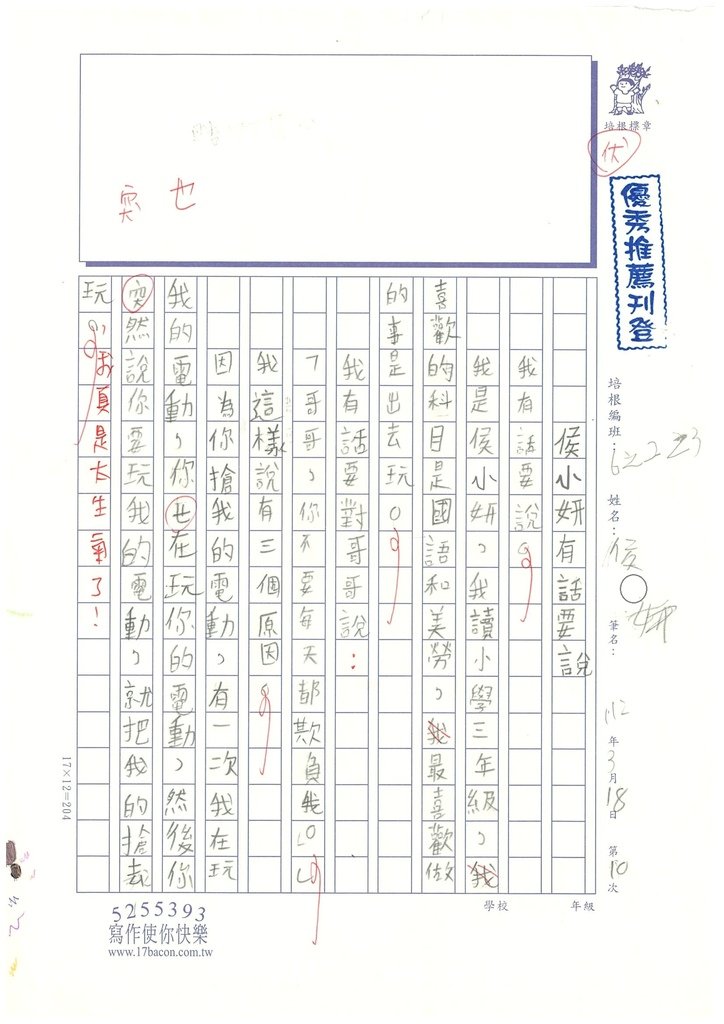 培根標章
伏
優秀推薦刊登
培根編班：
6之2之3
姓名：侯○妍
筆名：
112年3月18日第10次
學校 年級
突 也
侯小妍有話要說
我有話要說。
我是侯小妍，我讀小學三年級，我
喜歡的科目是國語和美勞，我最喜歡做
的事是出去玩。
我有話要對哥哥說：
「哥哥，你不要每天都欺負我。」
我這樣說有三個原因。
因為你搶我的電動，有一次我在玩
我的電動，你也在玩你的電動，然後你
突然說你要玩我的電動，就把我的搶去
玩，我真是太生氣了！
17×12=204
5255393
寫作使你快樂
www.17bacon.com.tw